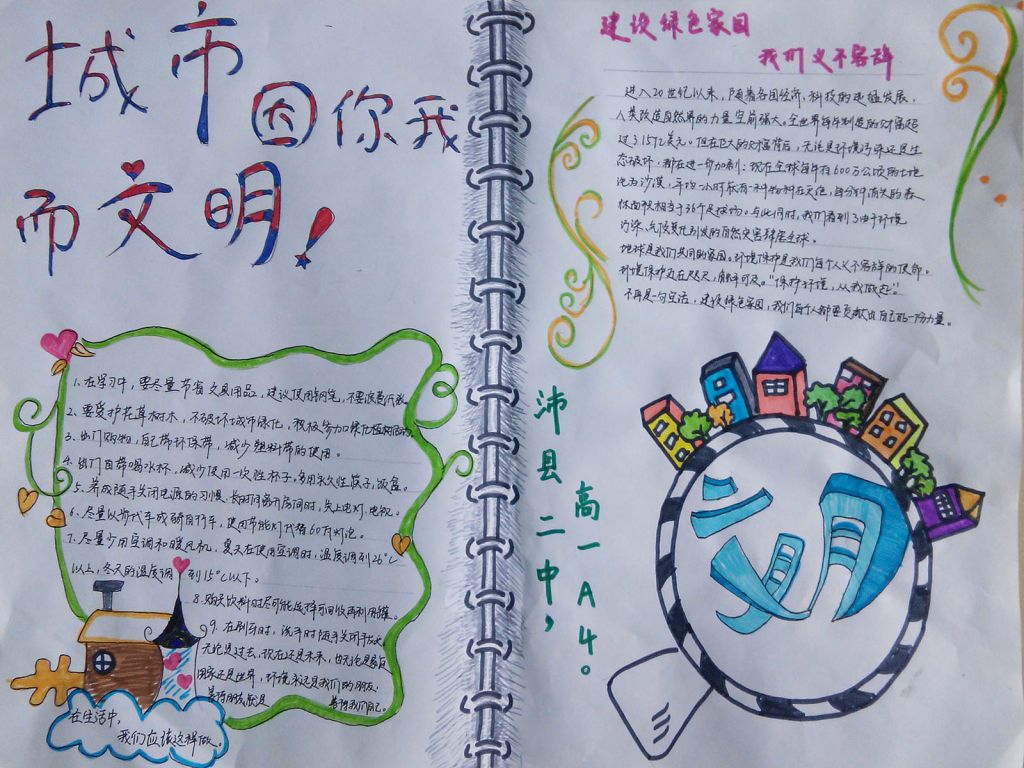 城市因你我
而文明！
1、在学习中，要尽量节省文具用品，建议使用钢笔，不要浪费纸张
2、要爱护花草树木，不破坏城市绿化，积极参加绿化植树活动
3、出门购物，自己带环保袋，减少塑料袋的使用。
4、出门自带喝水杯，减少使用一次性杯子，多用永久性筷子，饭盒。
5、养成随手关闭电源的习惯，长时间离开房间时，关上电灯，电视。
6、尽量以步代车或骑自行车，使用节能灯代替60瓦灯泡。
7、尽量少用空调和暖风机，夏天在使用空调时，温度调到26℃
以上，冬天的温度调到15℃以下。
8、购买饮料时尽可能选择可回收再利用罐。
9、在刷牙时，洗手时随手关闭手龙头
无论是过去，现在还是未来，也无论是家庭
国家还是世界，环境永远是我们的朋友，
善待朋友就是善待我们自己。
在生活中，
我们应该这样做。
建设绿色家园
我们义不容辞
进入20世纪以来，随着各国经济、科技的迅猛发展，
人类改造自然界的力量空前强大。全世界每年制造的财富超
过了15亿美元。但在巨大的财富背后，无论是环境污染还是生
态破坏，都在进一步加剧：现在全球每年有600万公顷的土地
沦为沙漠，平均一小时就有一种物种在灭绝，每分钟消失的森
林面积相当于36个足球场。与此同时，我们看到了由于环境
污染、气候变化引发的自然灾害肆虐全球。
地球是我们共同的家园。环境保护是我们每个人义不容辞的使命。
环境保护近在咫尺，触手可及。“保护环境，从我做起”
不再是一句空话，建设绿色家园，我们每个人都要贡献出自己的一份力量。
沛县二中，
高一A4。
文明